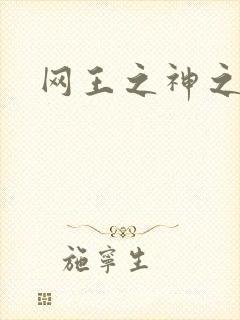 网王之神之
施寧生